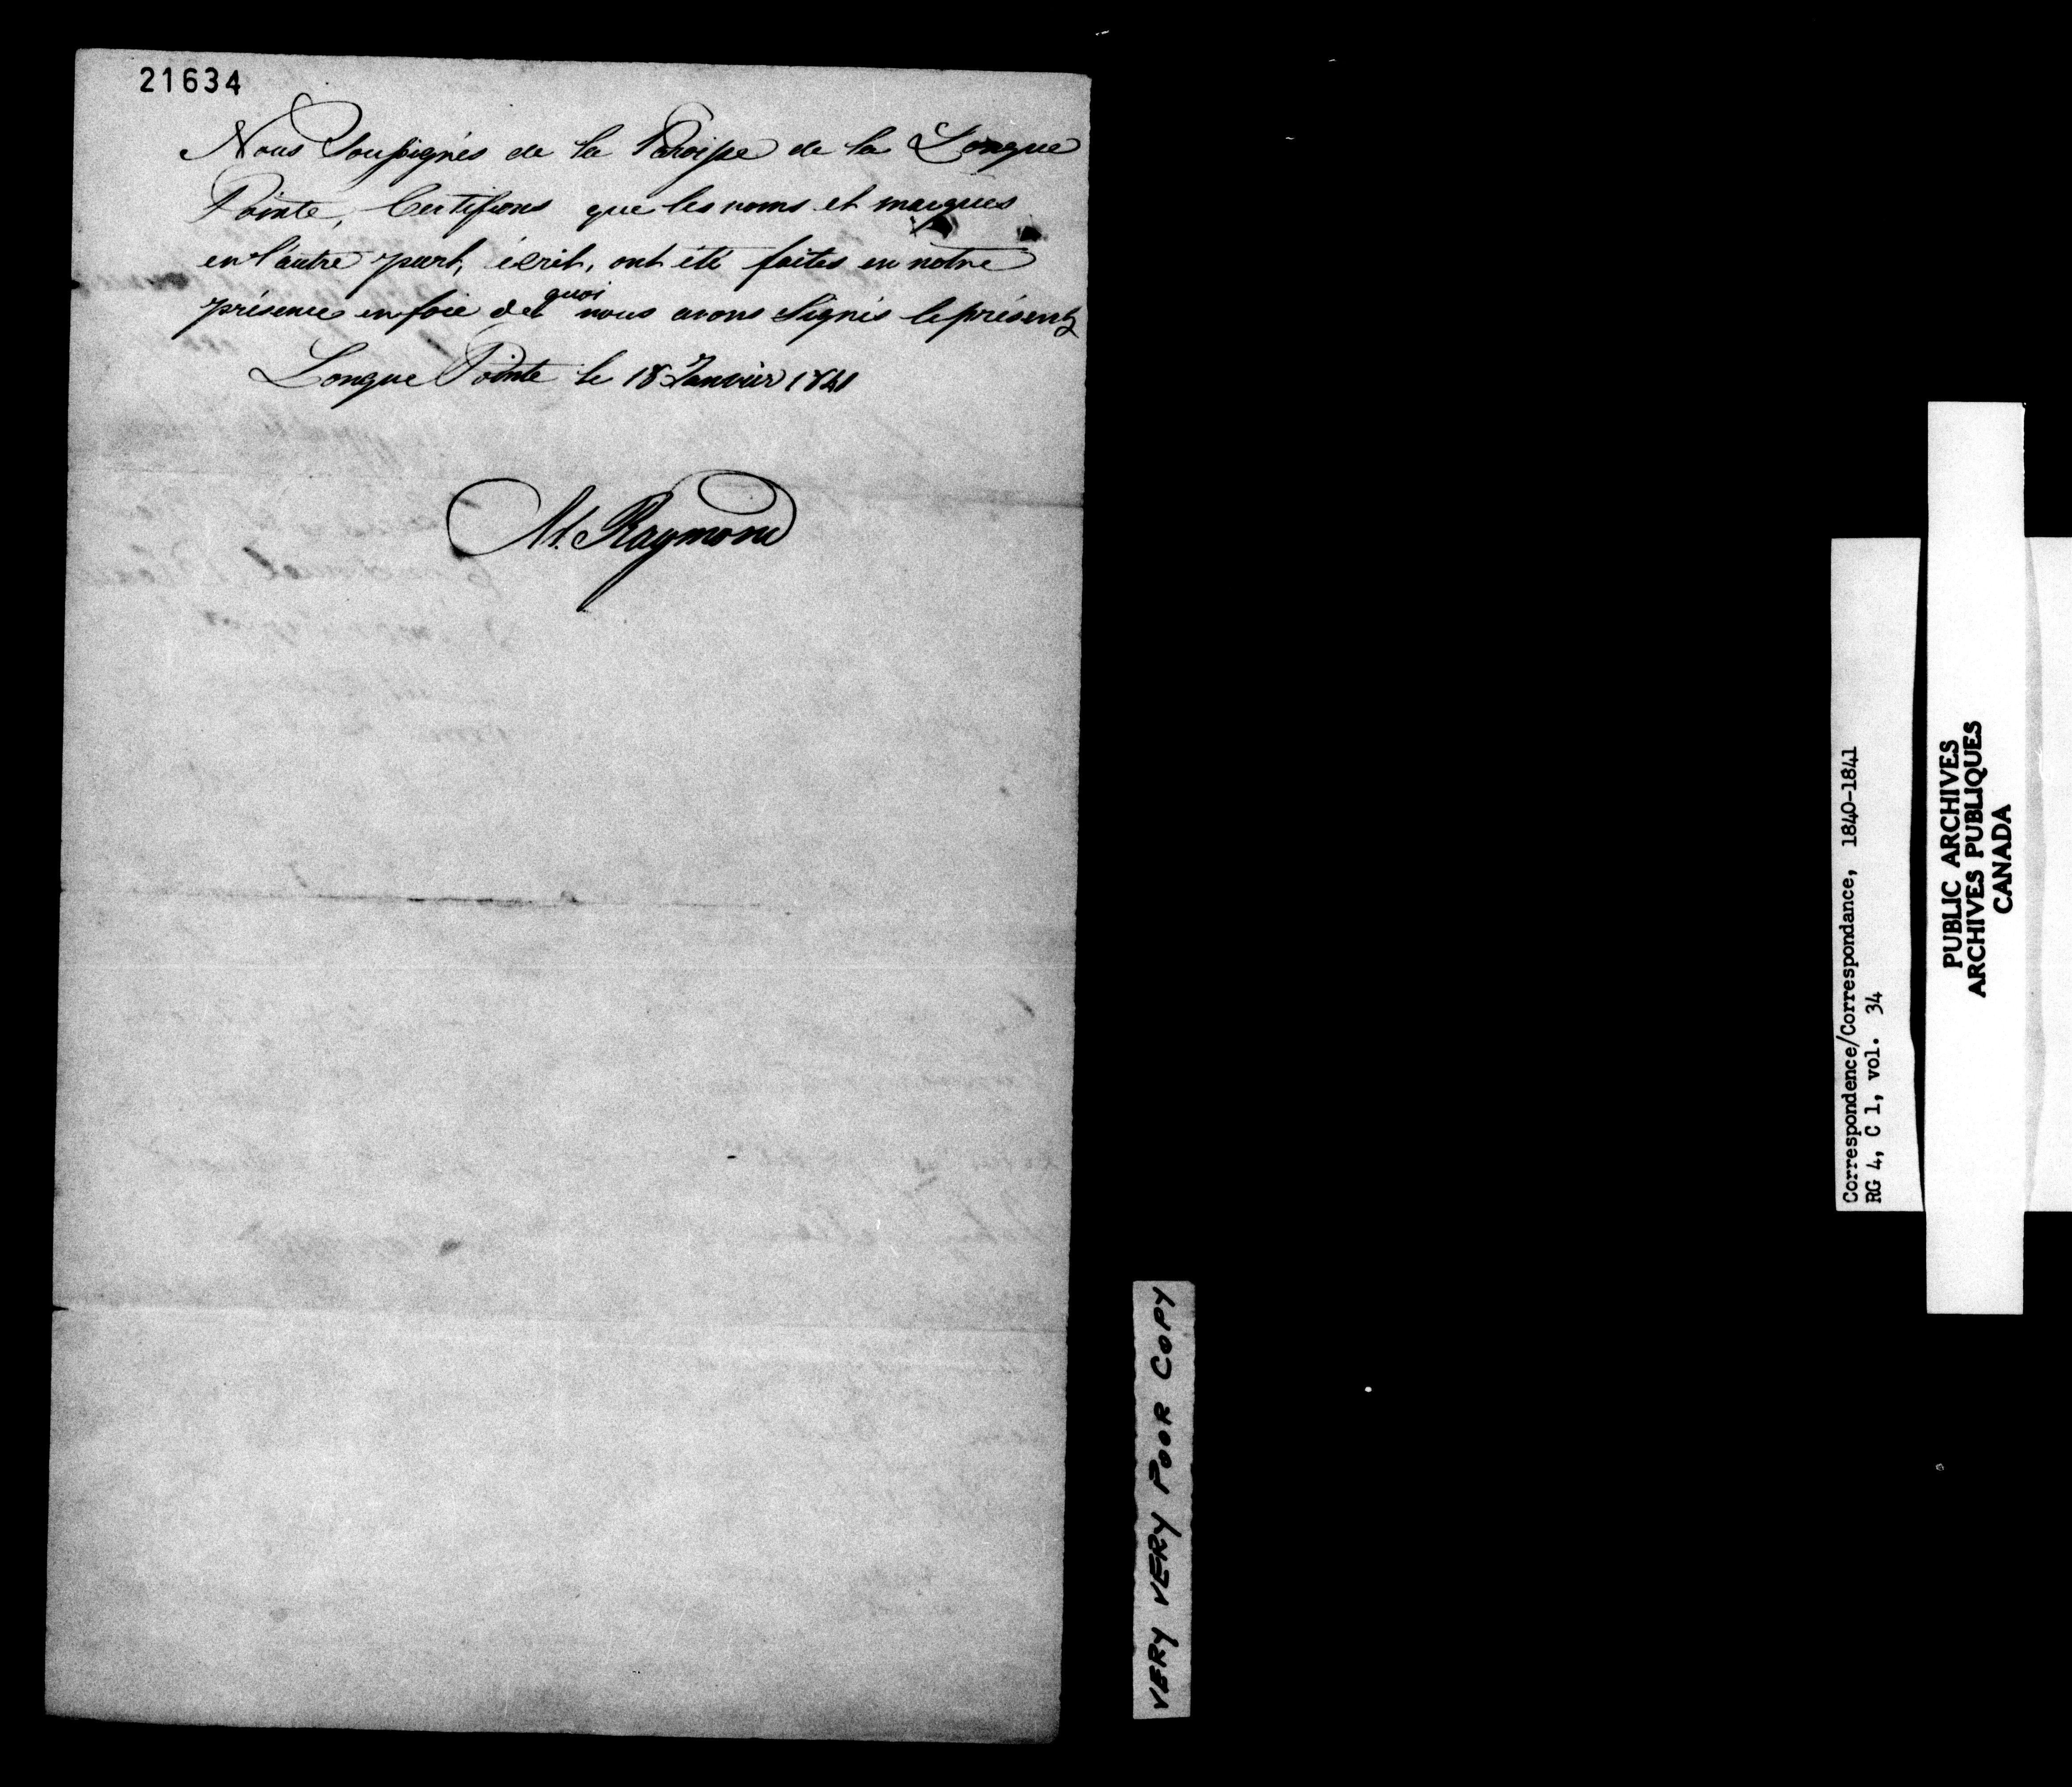 21634
Nous Soussignés de la Paroisse de la Longue
Pointe, Certifions que les noms et marques
en l'autre part, écrit, ont été faites en notre
présence en foie de quoi nous avons Signés le présent
Longue Pointe le 18 Janvier 1841
Raymond
VERY VERY POOR COPY
Correspondence/Correspondance, 1840-1841
RG 4, C 1, vol. 34
PUBLIC ARCHIVES
ARCHIVES PUBLIQUES
CANADA